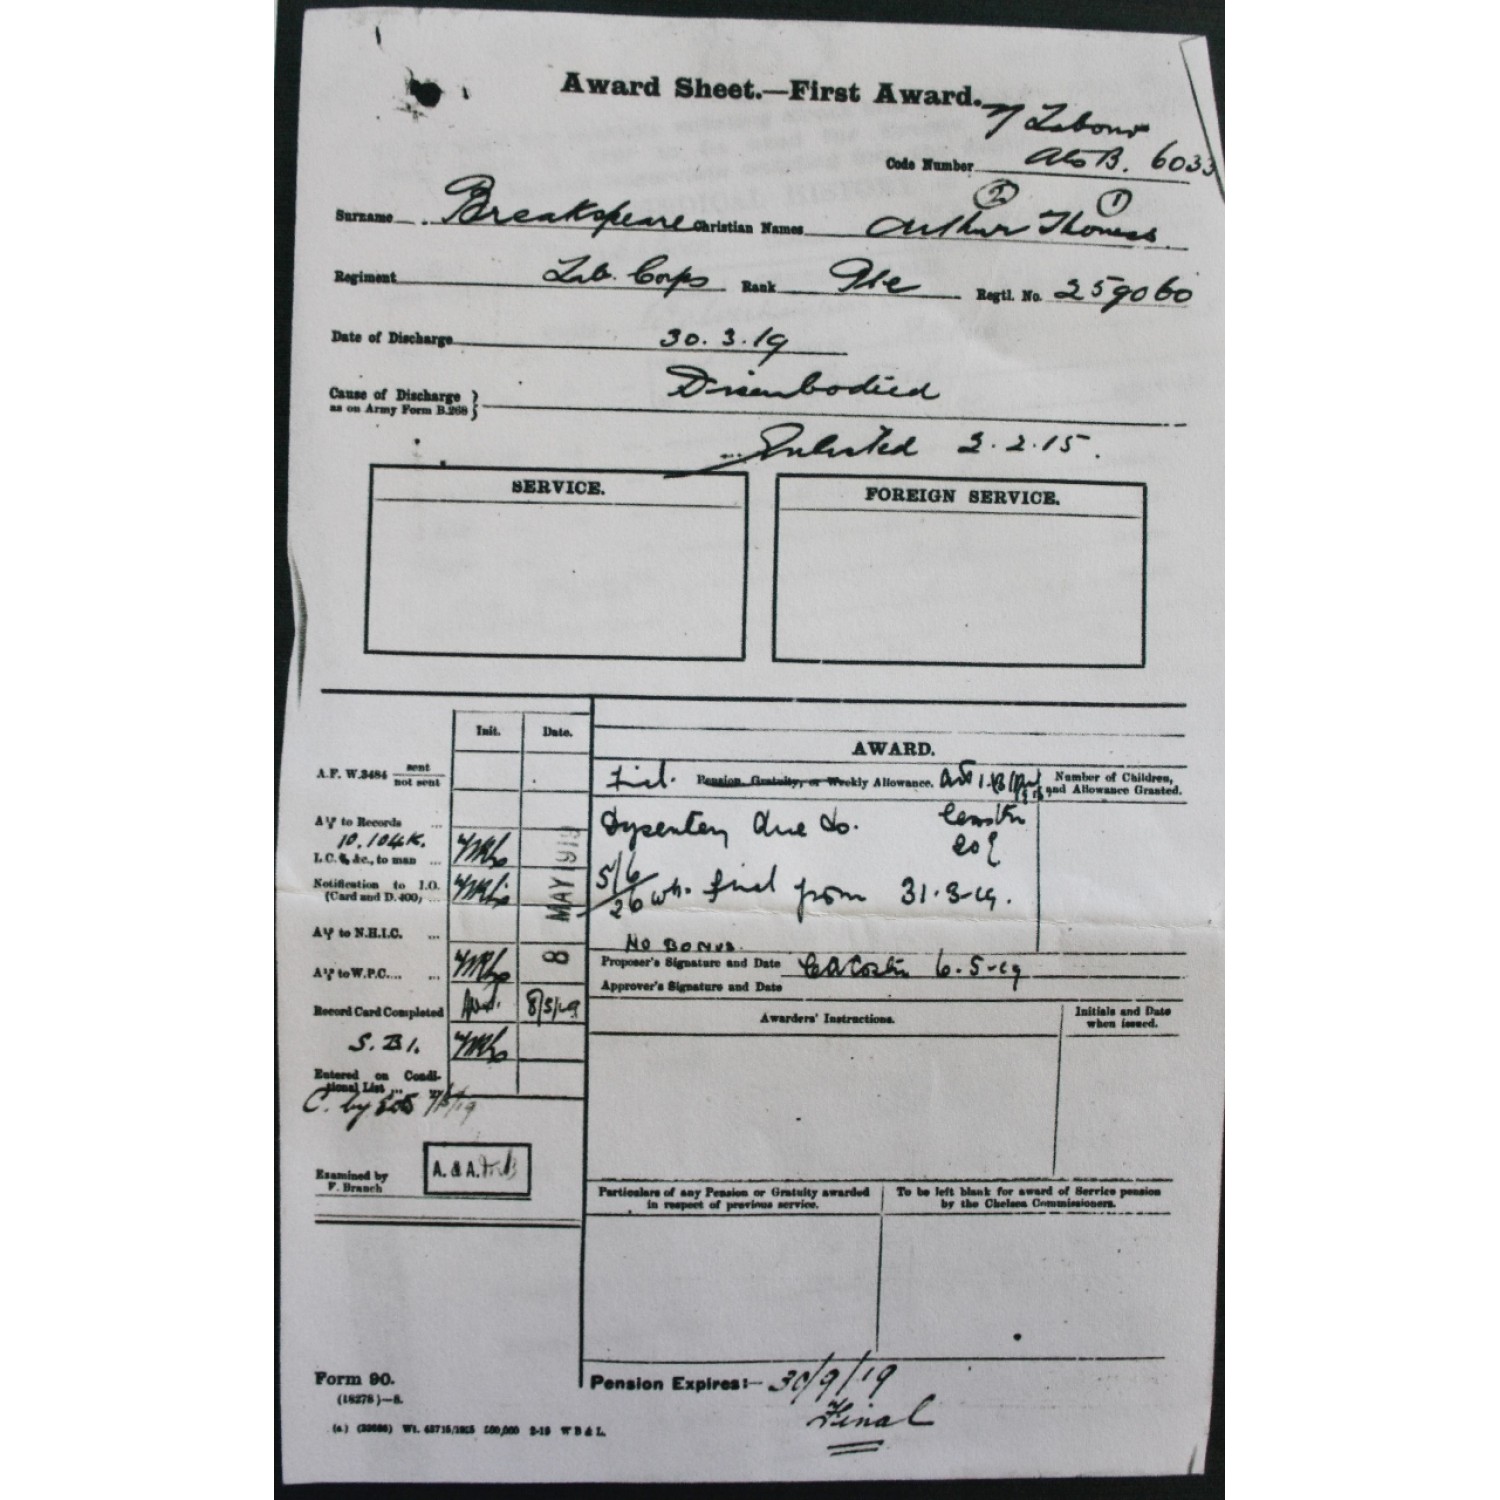 Award Sheet.—First Award.
Labour
Code Number 6033
Surname Breakspeare Christian Names Arthur Thomas
② ①
Regiment Lab. Corps Rank Pte Regtl. No. 259060
Date of Discharge 30.3.19
Cause of Discharge Disembodied
as on Army Form B.268
Enlisted 2.2.15.
SERVICE. FOREIGN SERVICE.
Init. Date.
AWARD.
A.F. W.3484 sent
not sent
Pension, Gratuity, or Weekly Allowance.
Number of Children, and Allowance Granted.
A/f to Records ...
10.104K.
I.C.&, &c., to man ...
Dysentery due to.
20%
Notification to I.O.
(Card and D.400) ...
5/6
26 wks. final from 31.3.19.
8 MAY 1919
A/f to N.H.I.C. ...
NO BONUS.
Proposer's Signature and Date 6.5.19
A/f to W.P.C.... ...
Approver's Signature and Date
Record Card Completed 8/5/19
Awarders' Instructions.
Initials and Date when issued.
S.B1.
Entered on Conditional List ...
C. by
Examined by
F. Branch
A. & A.
Particulars of any Pension or Gratuity awarded in respect of previous service.
To be left blank for award of Service pension by the Chelsea Commissioners.
Form 90.
(18278)—8.
Pension Expires:— 30/9/19
Final
W B & L.